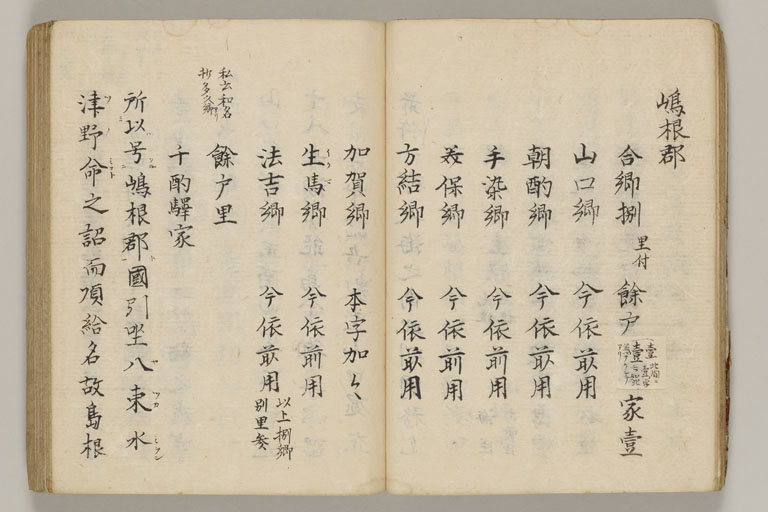 嶋根郡
合郷捌 里付 餘戸壹 家壹
山口郷 今依前用
朝酌郷 今依前用
手染郷 今依前用
美保郷 今依前用
方結郷 今依前用
加賀郷 本字加々
生馬郷 今依前用
法吉郷 今依前用 以上捌郷別里参
餘戸里
私云和名抄多久郷
千酌驛家
所以号嶋根郡國引坐八束水
津野命之詔而項給名故島根